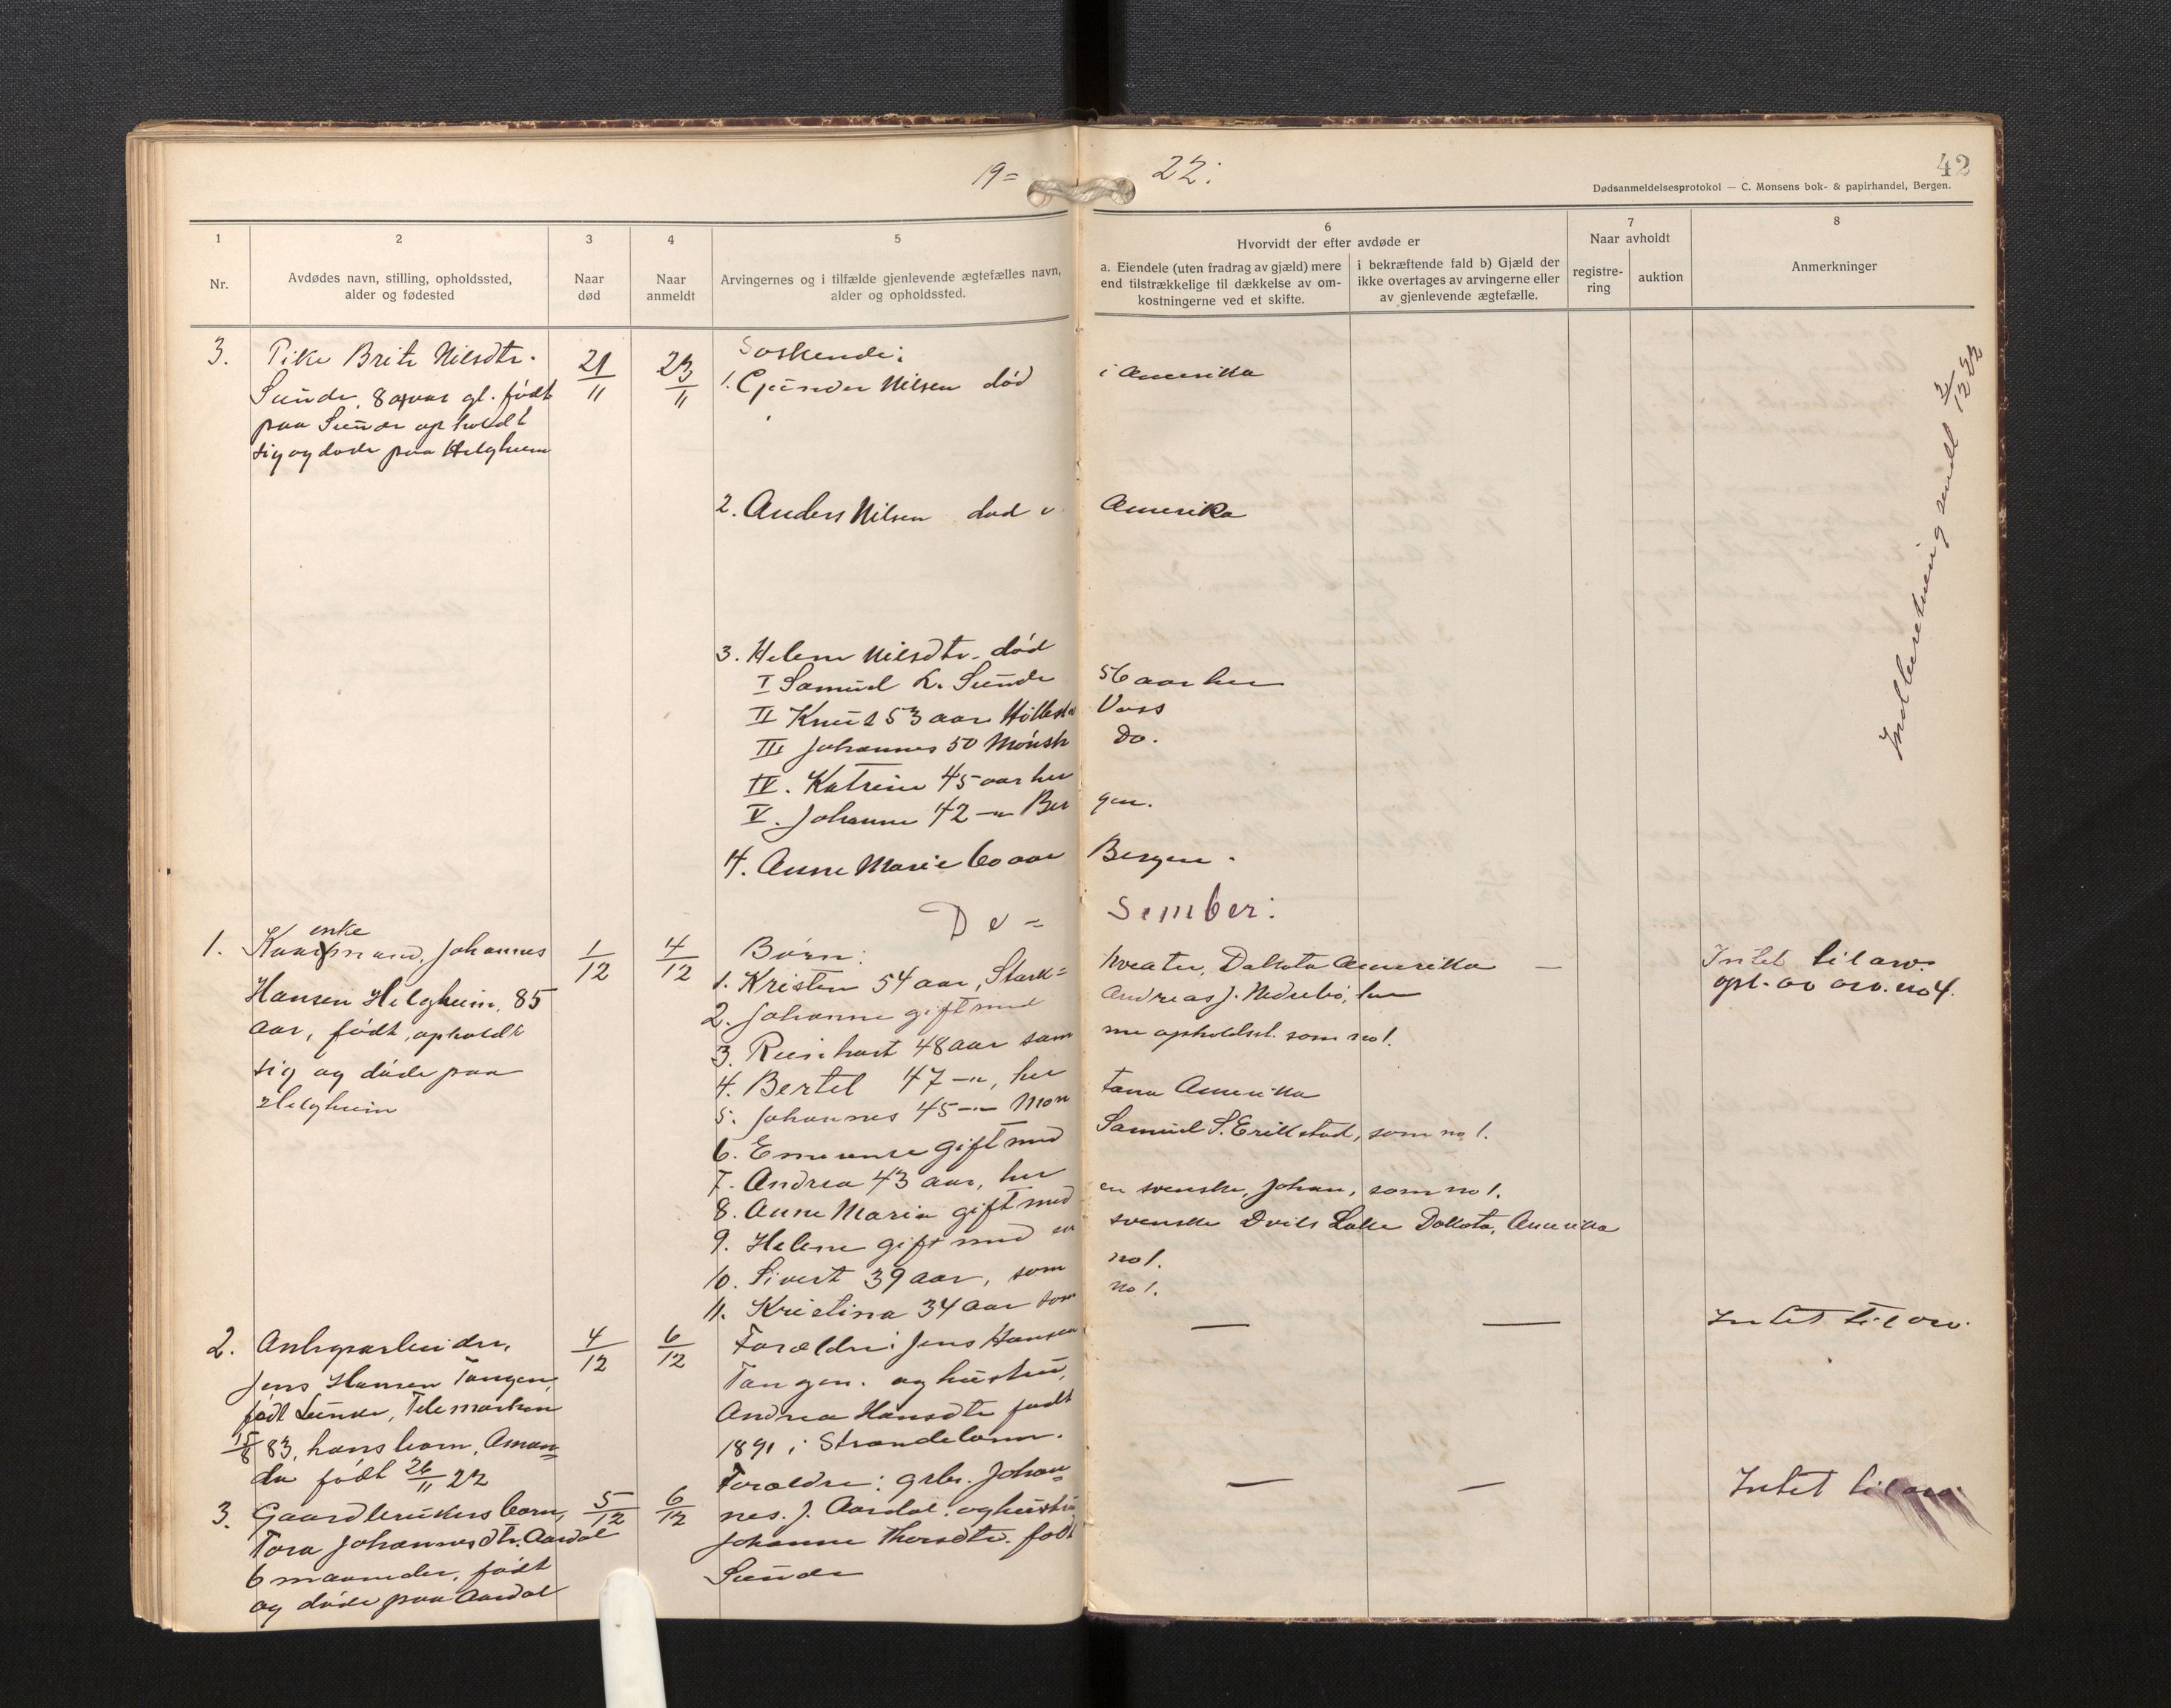 19= 22:
42
Dødsanmeldelsesprotokol — C. Monsens bok- & papirhandel, Bergen.
1 2 3 4 5 6 7 8
Nr.
Avdødes navn, stilling, opholdssted,
alder og fødested
Naar
død
Naar
anmeldt
Arvingernes og i tilfælde gjenlevende ægtefælles navn,
alder og opholdssted.
Hvorvidt der efter avdøde er
a. Eiendele (uten fradrag av gjæld) mere
end tilstrækkelige til dækkelse av om-
kostningerne ved et skifte.
i bekræftende fald b) Gjæld der
ikke overtages av arvingerne eller
av gjenlevende ægtefælle.
Naar avholdt
registre-
ring
auktion
Anmerkninger
3. Pike Brite Nilsdtr.
Sunde, 80 aar gl. født
paa Sunde opholdt
sig og døde paa Helgheim
21/11
23/11
Søskende:
1. Gunder Nilsen død i Amerika
2. Anders Nilsen død i Amerika
3. Helene Nilsdtr. død
I Samuel L. Sunde 56 aar her
II Knut 53 aar Voss
III Johannes 50 Do.
IV. Katrine 45 aar her
V. Johanne 42 -"- Bergen.
4. Anne Marie 60 aar Bergen.
Indberetning sendt 2/12 22
De= sember:
1. enke
Johannes
Hansen Helgheim, 85
aar, født, opholdt
sig og døde paa
Helgheim
1/12
4/12
Børn:
1. Kristen 54 aar, Stark= Dakota Amerika —
2. Johanne gift med Andreas J. Nedrebø, her
3. Reinhart 48 aar samme opholdsst. som no 1.
4. Bertel 47 -"-, her
5. Johannes 45 -"- Montana Amerika
6. Emerense gift med Samuel S. Erikstad, som no 1.
7. Andrea 43 aar, her
8. Anne Maria gift med en svenske, Johan, som no 1.
9. Helene gift med en svenske Dvils Lake Dakota, Amerika
10. Sivert 39 aar, som no 1.
11. Kristina 34 aar som no 1.
Intet til arv.
no 4.
2. Anlegsarbeider,
Jens Hansen Tangen,
født Lunde, Telemarken
15/8 83, hans barn, Aman=
da født 26/11 22
4/12
6/12
Forældre: Jens Hansen
Tangen. og hustru,
Andrea Hansdtr født
1891 i Strandebarm.
— —
Intet til arv.
3. Gaardbrukers barn,
Tora Johannesdtr. Aardal
6 maaneder, født
og døde paa Aardal
5/12
6/12
Forældre: grbr. Johan=
nes. J. Aardal. og hustru
Johanne Thorsdtr. født
Sunde
— —
Intet til arv.